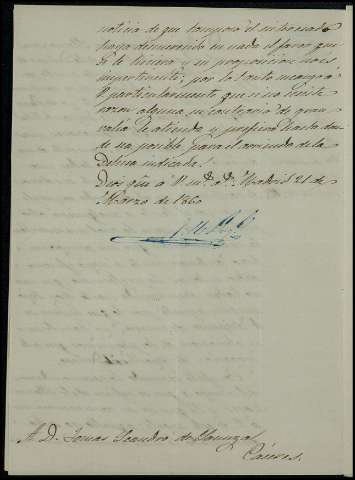 noticia de que tampoco el interesado
haya desmerecido en nada el favor que
se le hiciera y su proposicion no es
impertinente; por lo tanto
V. particularmente, que si no existe
razon alguna en contrario de gran
valia le atienda y prefiera hasta don-
de sea posible para el arriendo de la
Dehesa indicada.
Dios gũe á V. mũ. añ. Madrid 21 de
Marzo de 1860
A. D. Tomas Leandro de
Cáceres.